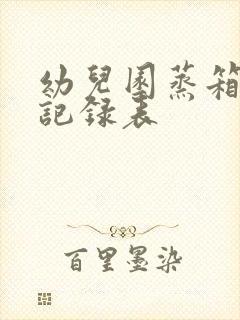 幼兒園蒸箱
記録表
百里墨染